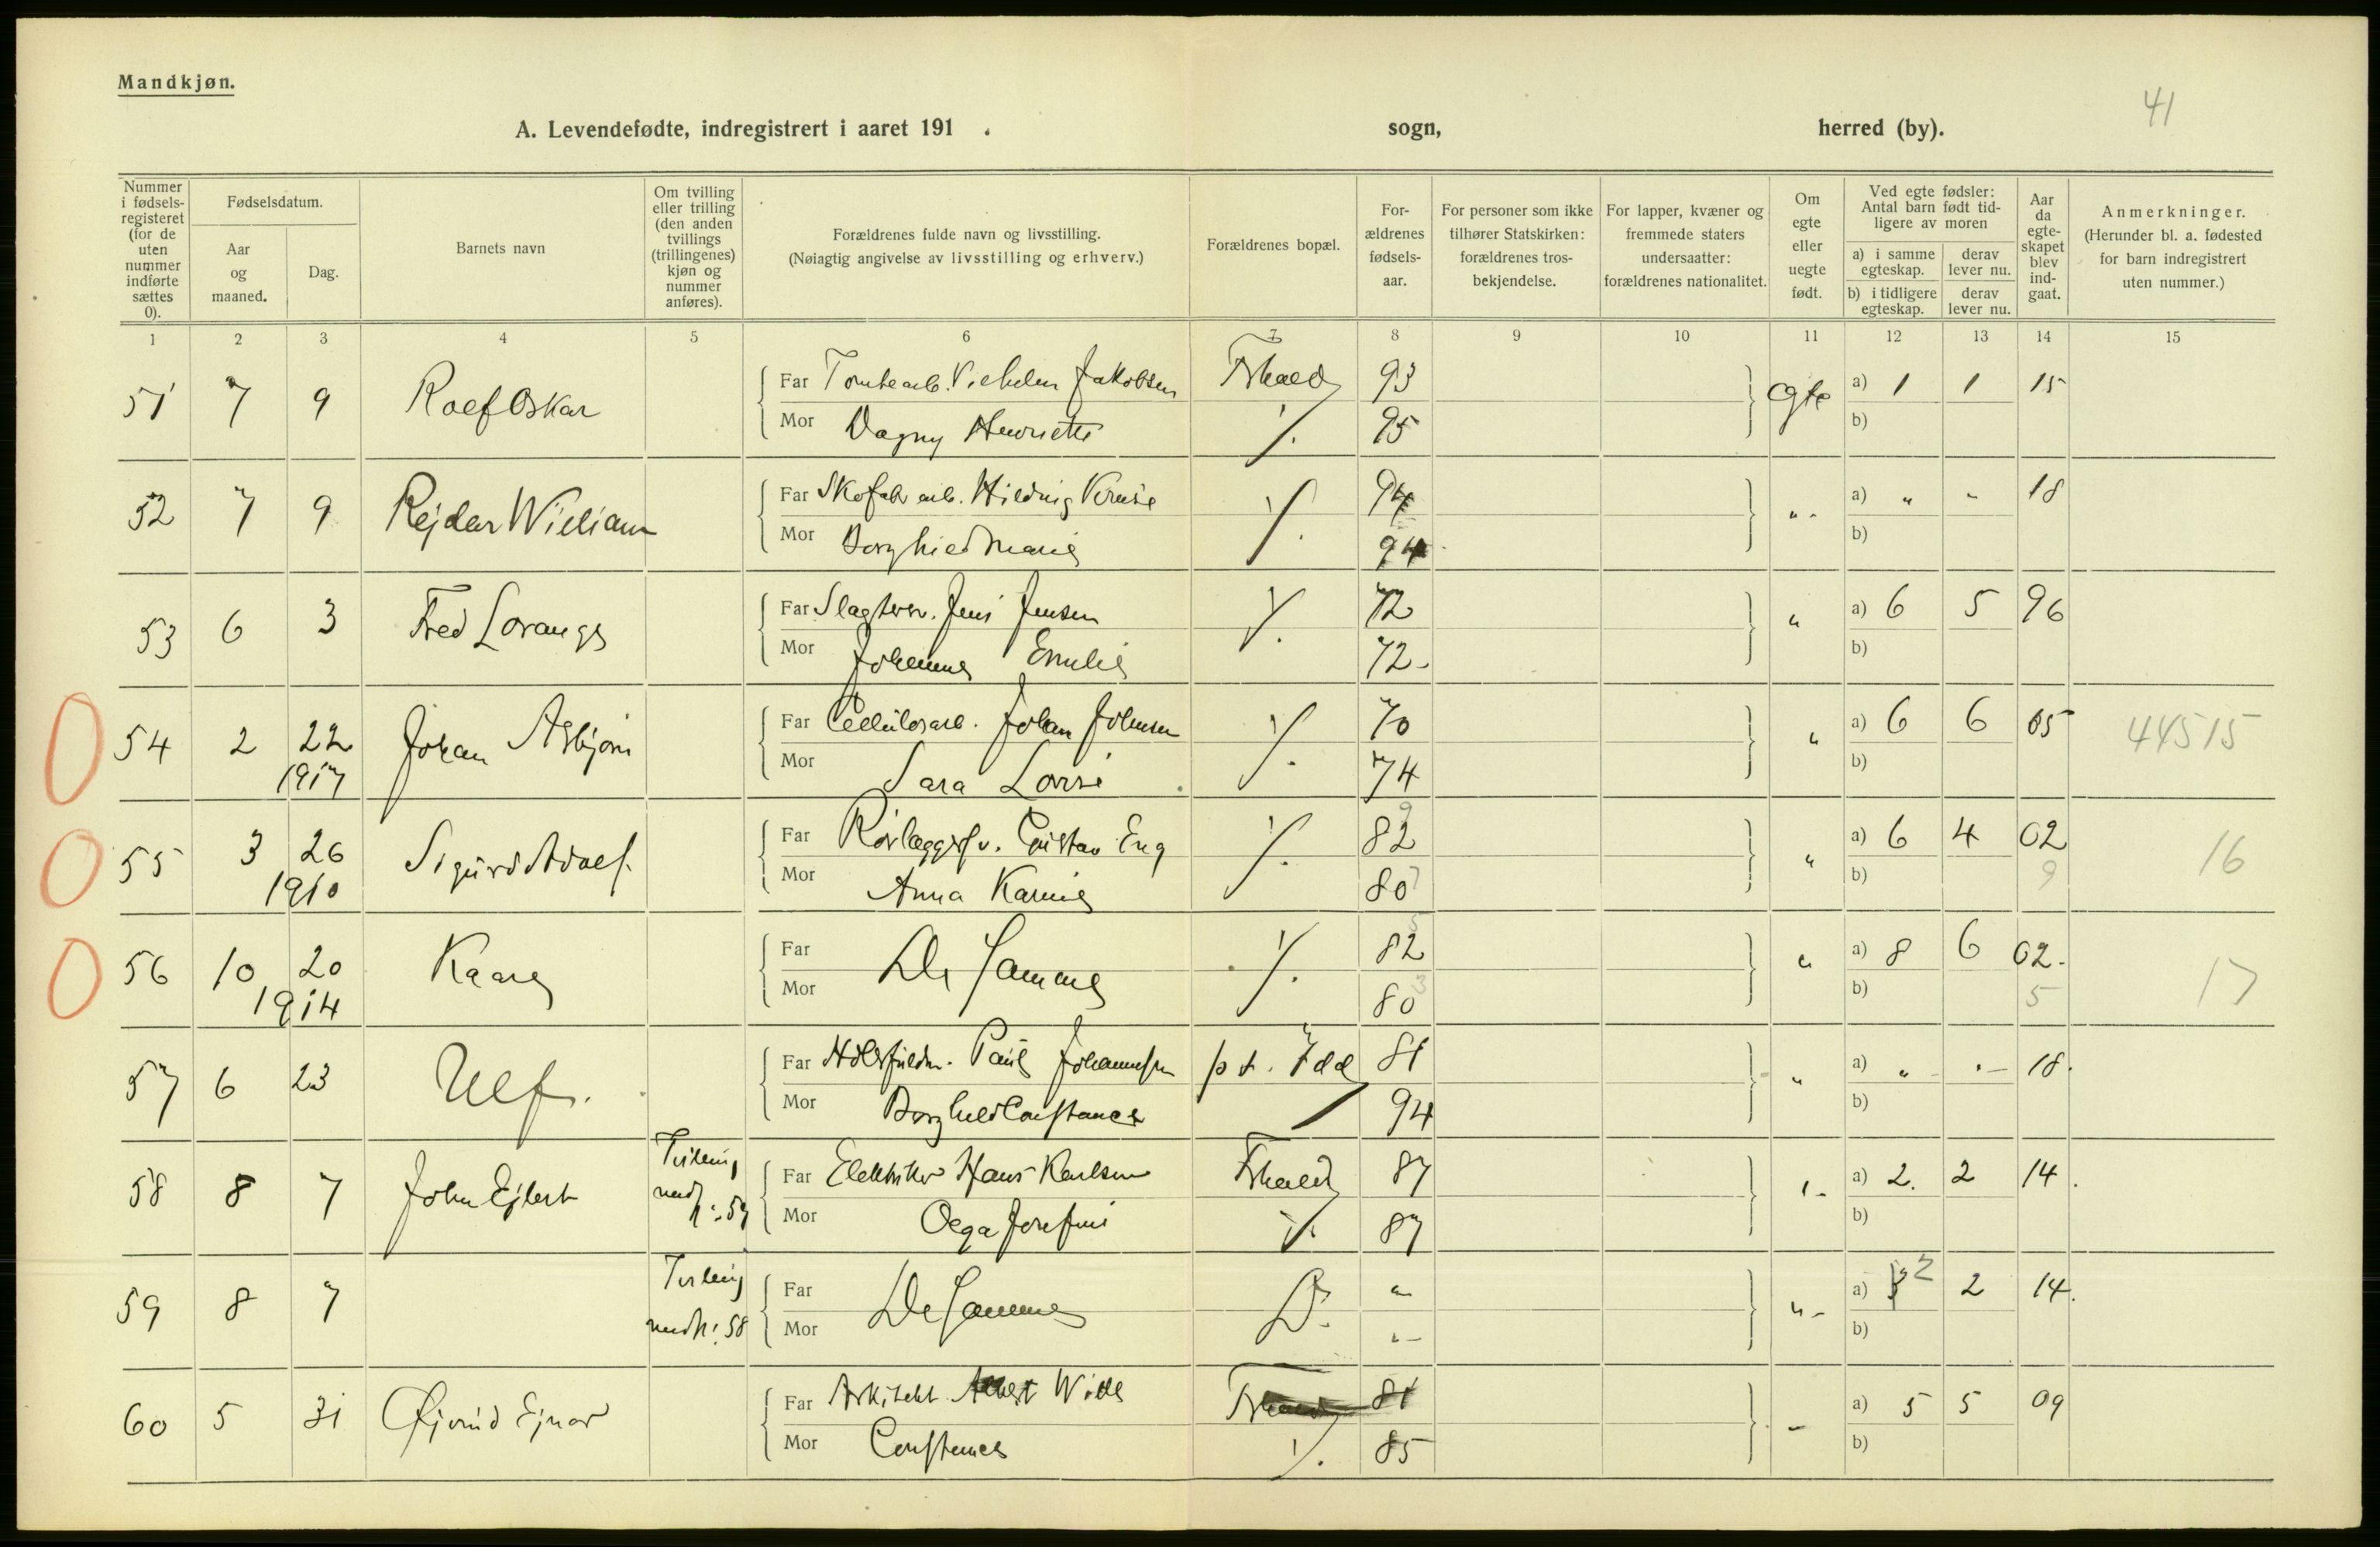 Mandkjøn.
41
A. Levendefødte, indregistrert i aaret 191 . sogn, herred (by).
Nummer i fødsels-registeret (for de uten nummer indførte sættes 0).
Fødselsdatum.
Aar og maaned.
Dag.
Barnets navn
Om tvilling eller trilling (den anden tvillings (trillingenes) kjøn og nummer anføres).
Forældrenes fulde navn og livsstilling.
(Nøiagtig angivelse av livsstilling og erhverv.)
Forældrenes bopæl.
For-ældrenes fødsels-aar.
For personer som ikke tilhører Statskirken: forældrenes tros-bekjendelse.
For lapper, kvæner og fremmede staters undersaatter: forældrenes nationalitet.
Om egte eller uegte født.
Ved egte fødsler: Antal barn født tid-ligere av moren
a) i samme egteskap. derav lever nu.
b) i tidligere egteskap. derav lever nu.
Aar da egte-skapet blev ind-gaat.
Anmerkninger.
(Herunder bl. a. fødested for barn indregistrert uten nummer.)
1 2 3 4 5 6 7 8 9 10 11 12 13 14 15
51 7 9 Rolf Oskar Far Tomtearb. Vilhelm Jakobsen Frhald 93 Egte a) 1 1 15
Mor Dagny Henriette ⁒ 95 b)
52 7 9 Rejdar William Far Skofabr arb. Hilding Kruse ⁒ 94 " - a) " " 18
Mor Borghild Marie 94 b)
53 6 3 Fred Lorang Far Slagterm. Jens Jensen ⁒ 72 " a) 6 5 96
Mor Johanne Emilie 72 - b)
54 2 22 Johan Asbjørn Far Cellulosearb. Johan Johnsen ⁒ 70 " a) 6 6 05 44515
1917 Mor Sara Lovise 74 b)
55 3 26 Sigurd Adolf. Far Rørlæggersv. Gustav Eng ⁒ 82 9 " a) 6 4 02 16
1910 Mor Anna Karine 80 7 b) 9
56 10 20 Kaare Far De Samme ⁒ 82 5 " a) 8 6 02. 17
1914 Mor 80 3 b) 5
57 6 23 Ulf. Far Paul Johannesen p t. Idd 81 " a) " " - 18.
Mor Borghild Constance 94 b)
58 8 7 John Ejlert Tvilling med № 59 Far Elektriker Hans Karlsen Frhald 87 " - a) 2. 2 14.
Mor Olga Josefine ⁒ 87 b)
59 8 7 Tvilling med № 58 Far De Samme D. " " - a) 2 2 14.
Mor " - b)
60 5 31 Øjvind Ejnar Far Arkitekt Albert Wille 81 - a) 5 5 09
Mor Constance ⁒ 85 b)